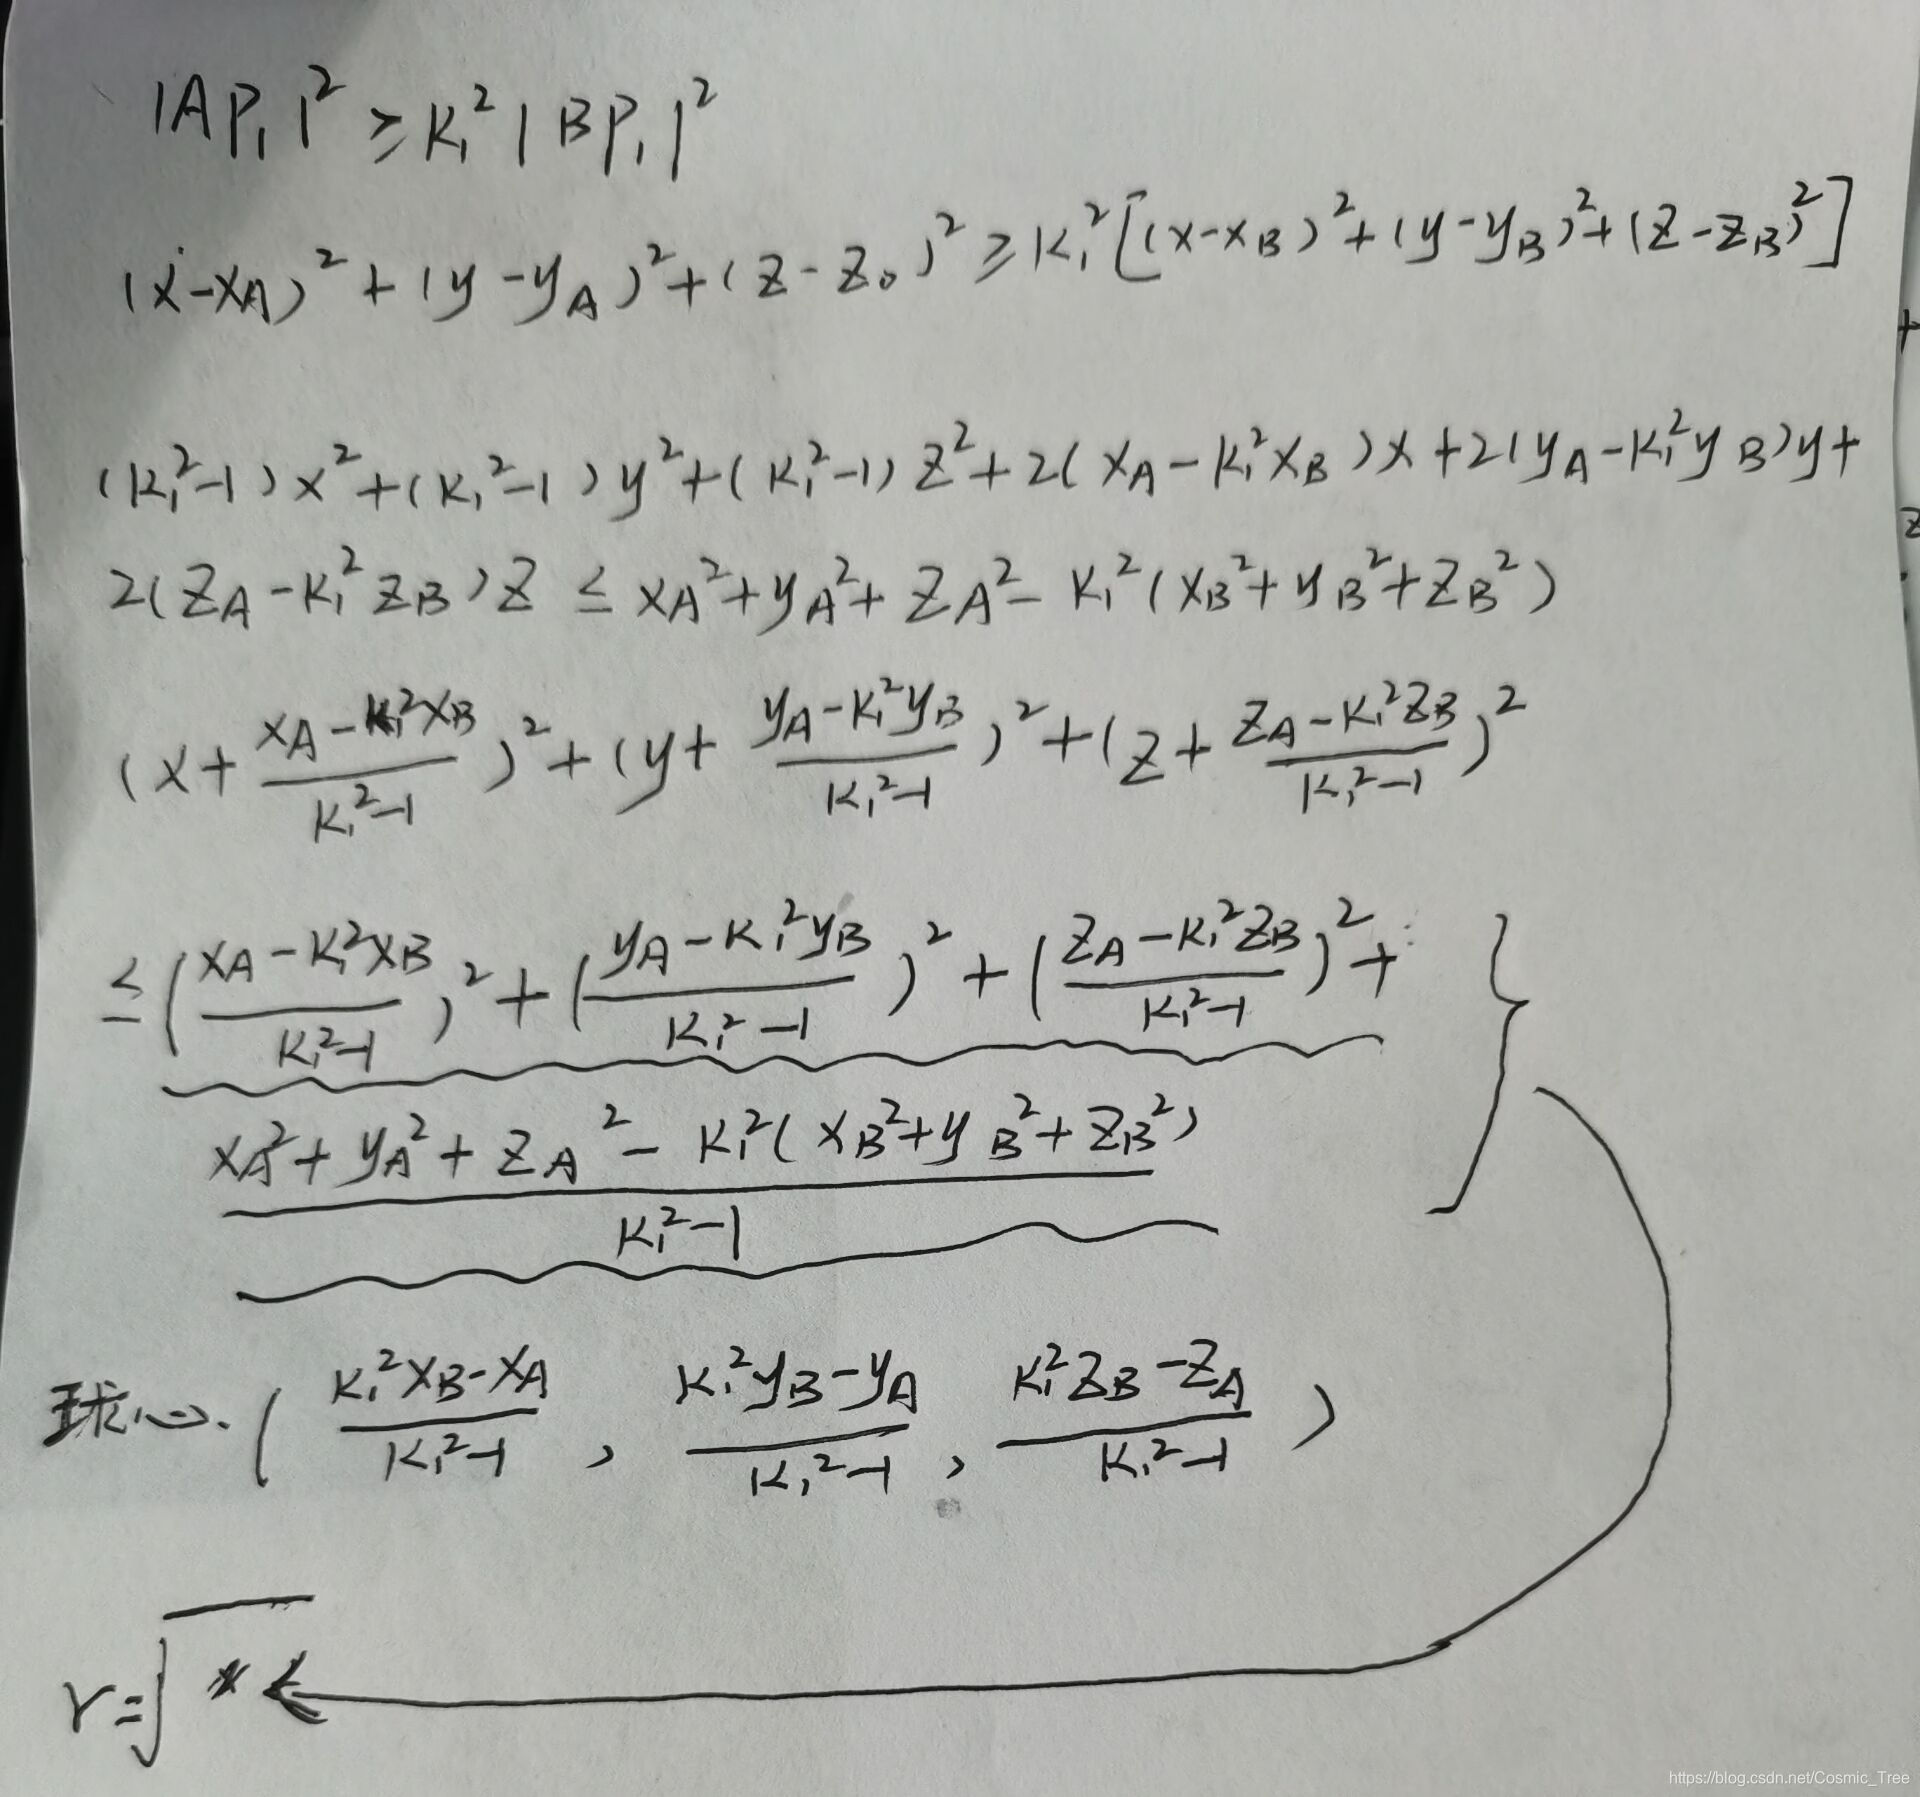 |AP₁|² ≥ K₁²|BP₁|²
(x-x_A)² + (y-y_A)² + (z-z₀)² ≥ K₁²[(x-x_B)² + (y-y_B)² + (z-z_B)²]
(K₁²-1)x² + (K₁²-1)y² + (K₁²-1)z² + 2(x_A-K₁²x_B)x + 2(y_A-K₁²y_B)y +
2(z_A-K₁²z_B)z ≤ x_A² + y_A² + z_A² - K₁²(x_B² + y_B² + z_B²)
(x + \frac{x_A-K₁²x_B}{K₁²-1})² + (y + \frac{y_A-K₁²y_B}{K₁²-1})² + (z + \frac{z_A-K₁²z_B}{K₁²-1})²
≤ (\frac{x_A-K₁²x_B}{K₁²-1})² + (\frac{y_A-K₁²y_B}{K₁²-1})² + (\frac{z_A-K₁²z_B}{K₁²-1})² +
\frac{x_A² + y_A² + z_A² - K₁²(x_B² + y_B² + z_B²)}{K₁²-1}
球心. (\frac{K₁²x_B-x_A}{K₁²-1}, \frac{K₁²y_B-y_A}{K₁²-1}, \frac{K₁²z_B-z_A}{K₁²-1})
r = √*
https://blog.csdn.net/Cosmic_Tree